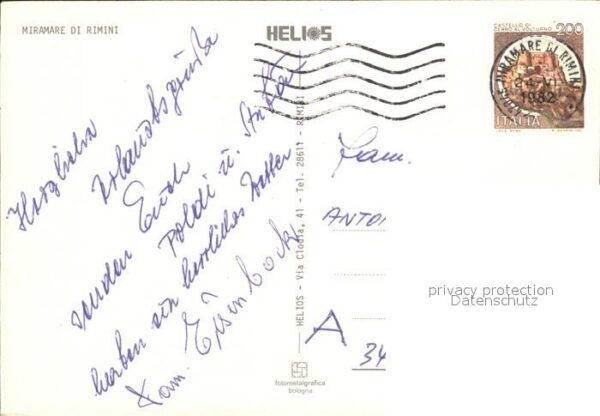 MIRAMARE DI RIMINI
HELIOS
CASTELLO DI
CERRO AL VOLTURNO
200
MIRAMARE DI RIMINI
1982
ITALIA
Herzliche Urlaubsgrüße
senden Euch
Poldi u.
haben ein herrliches Wetter
Fam. Eisenbock
HELIOS - Via Clodia, 41 - Tel. 28611 - RIMINI
fotometalgrafica
bologna
Fam.
ANTO
A
34
privacy protection
Datenschutz